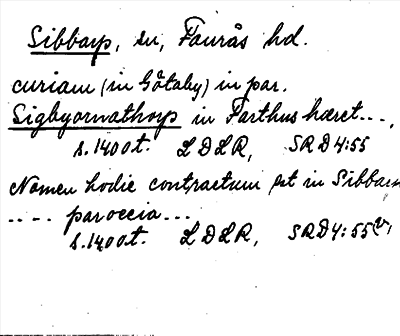 Sibbarp, sn, Faurås hd.
curiam (in Götaby) in par.
Sigbyornathorp in Farthus hæret---,
s. 1400t. LDLR, SRD4:55
Nomen hodie contractum est in Sibbarp
---- paroccia---
s. 1400t. LDLR, SRD4:55